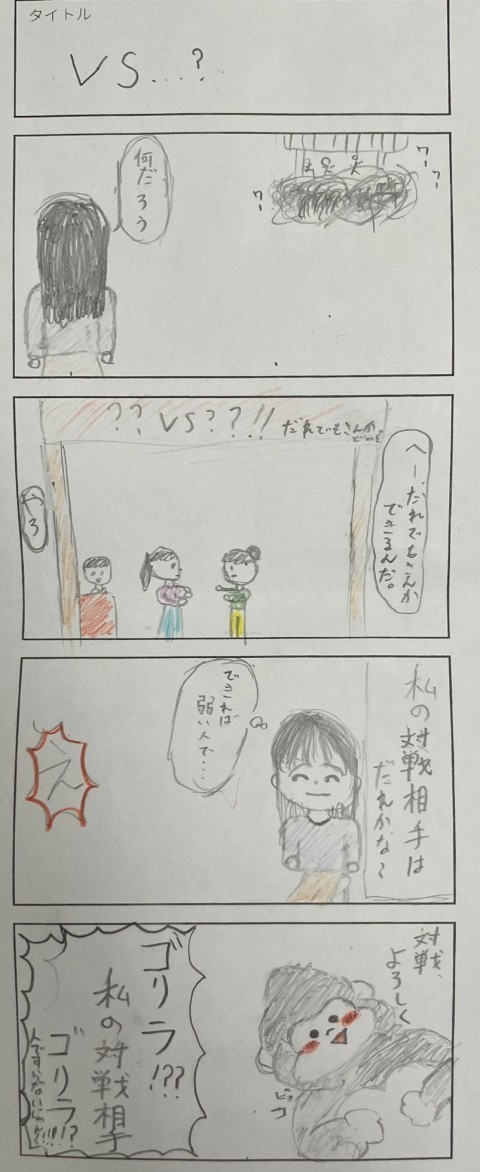 タイトル
VS...?
何だろう
ワー
ワー
ワー
??VS??!!
だれでもさんか
どうぞ
へー、だれでもさんか
できるんだ。
やろ
私の対戦相手は
だれかな~
できれば
弱い人で…
え
対戦、
よろしく
ゴリラ!??
私の対戦相手
ゴリラ!!?
人ですらないじゃん!!!!